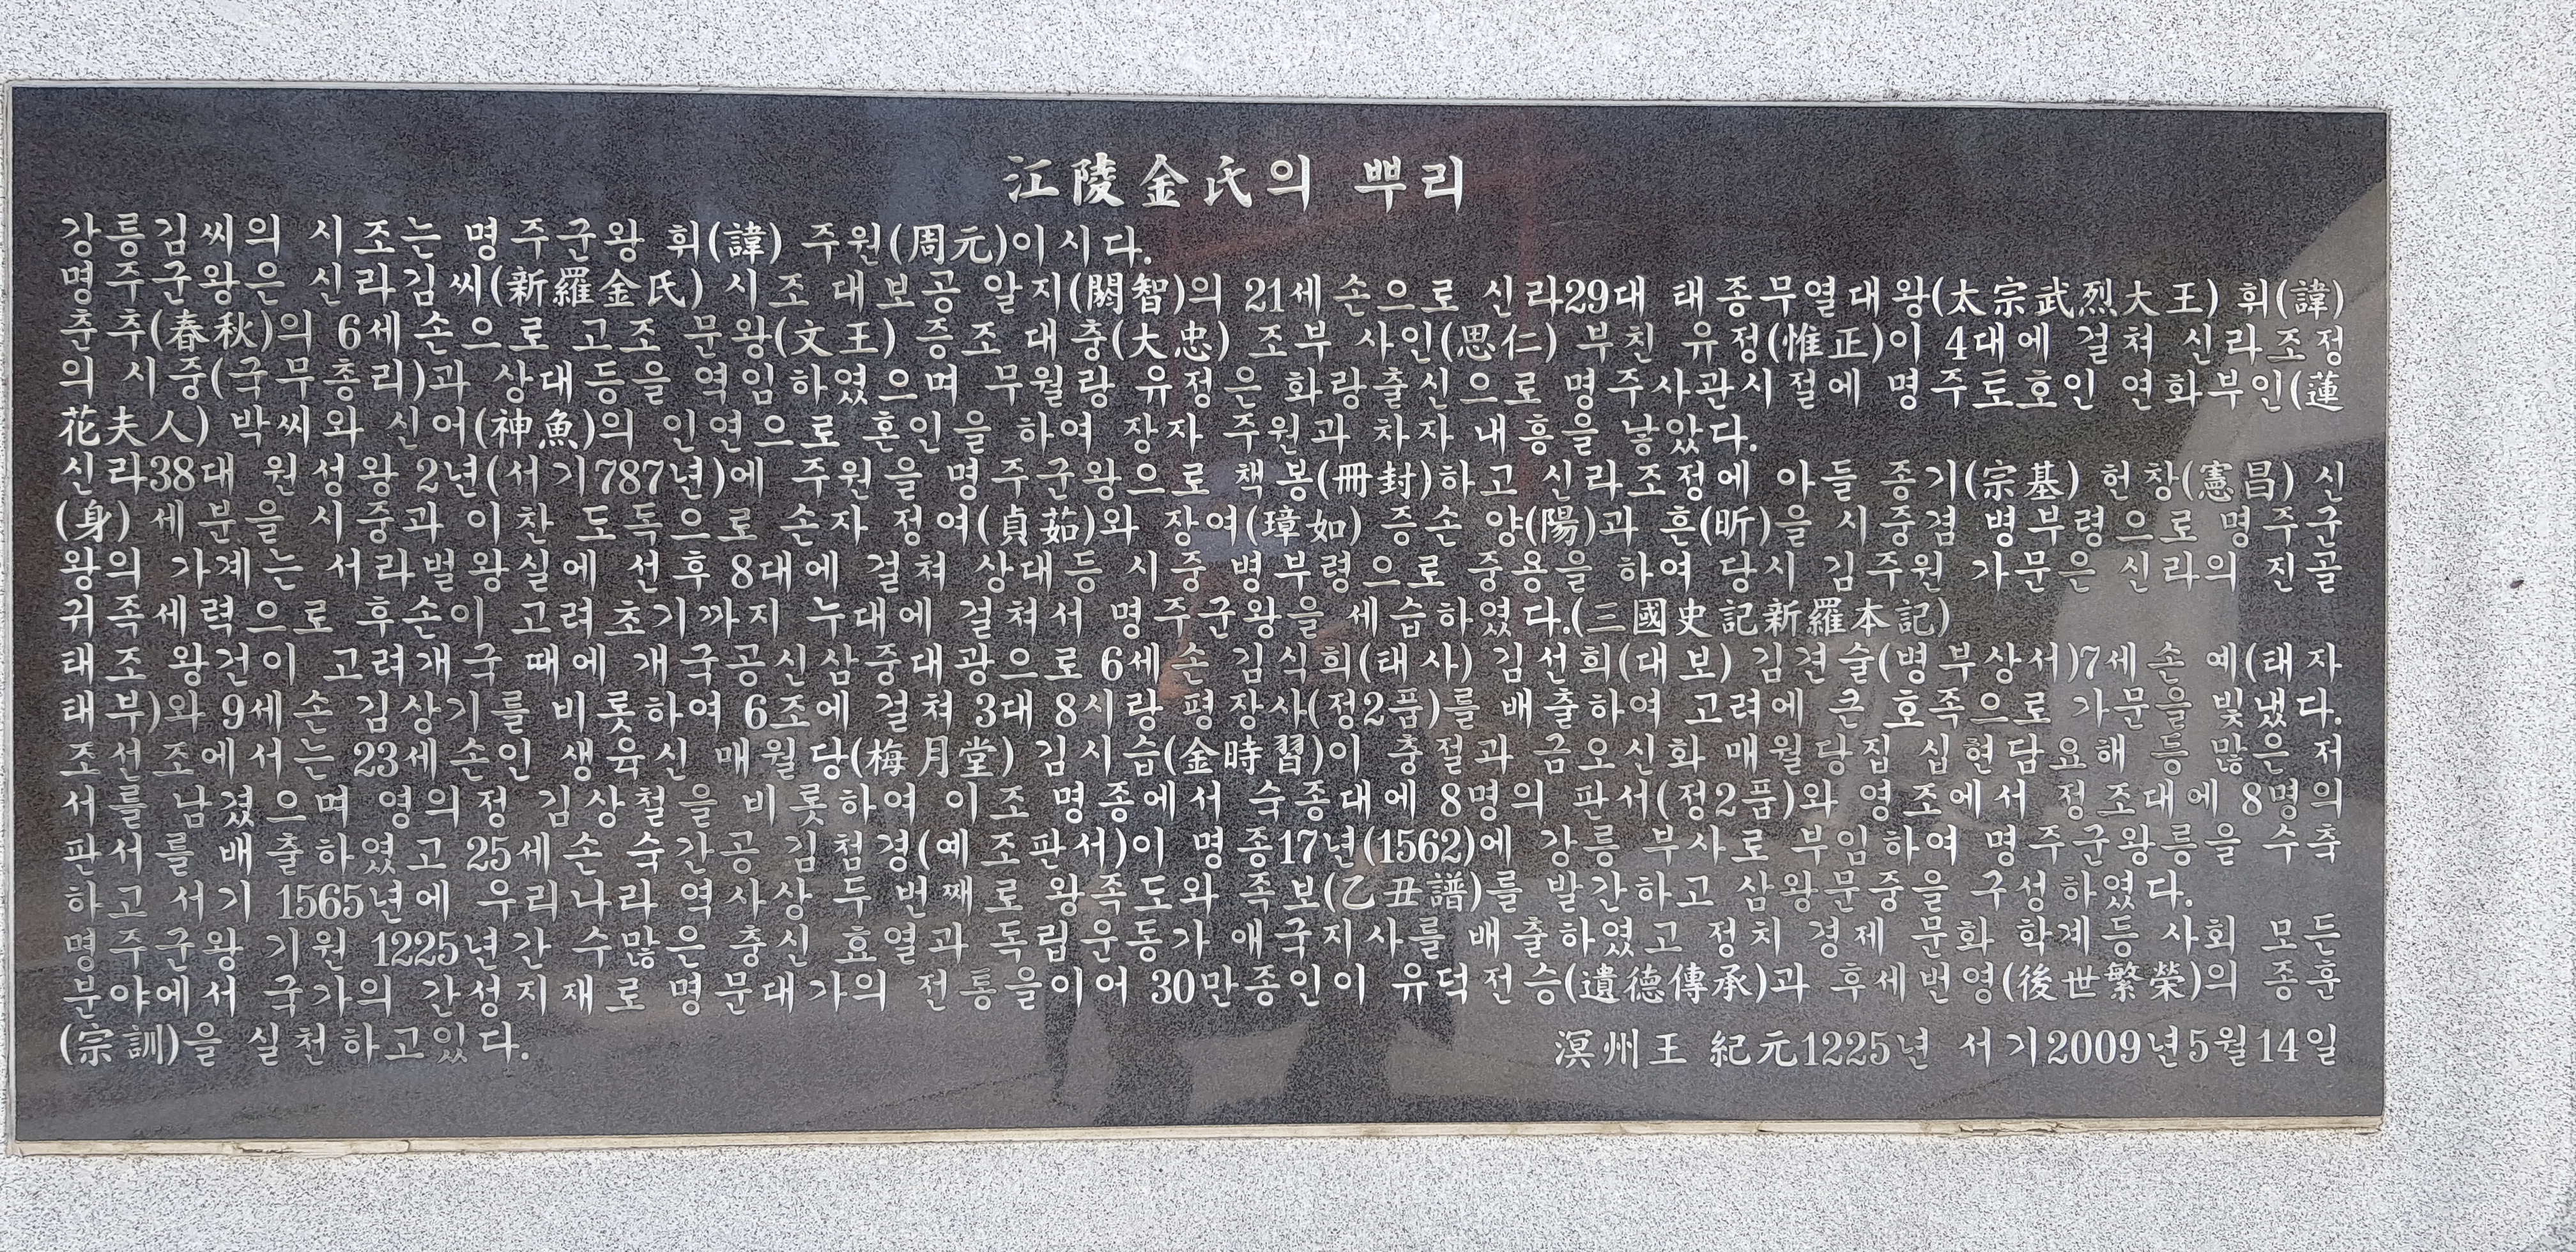 江陵金氏의 뿌리
강릉김씨의 시조는 명주군왕 휘(諱) 주원(周元)이시다.
명주군왕은 신라김씨(新羅金氏) 시조 대보공 알지(閼智)의 21세손으로 신라29대 태종무열대왕(太宗武烈大王) 휘(諱)
춘추(春秋)의 6세손으로 고조 문왕(文王) 증조 대충(大忠) 조부 사인(思仁) 부친 유정(惟正)이 4대에 걸쳐 신라조정
의 시중(국무총리)과 상대등을 역임하였으며 무월랑 유정은 화랑출신으로 명주사관시절에 명주토호인 연화부인(蓮
花夫人) 박씨와 신어(神魚)의 인연으로 혼인을 하여 장자 주원과 차자 내흥을 낳았다.
신라38대 원성왕 2년(서기787년)에 주원을 명주군왕으로 책봉(冊封)하고 신라조정에 아들 종기(宗基) 헌창(憲昌) 신
(身) 세분을 시중과 이찬 도독으로 손자 정여(貞茹)와 장여(璋如) 증손 양(陽)과 흔(昕)을 시중겸 병부령으로 명주군
왕의 가계는 서라벌왕실에 선후 8대에 걸쳐 상대등 시중 병부령으로 중용을 하여 당시 김주원 가문은 신라의 진골
귀족세력으로 후손이 고려초기까지 누대에 걸쳐서 명주군왕을 세습하였다.(三國史記新羅本記)
태조 왕건이 고려개국 때에 개국공신삼중대광으로 6세손 김식희(태사) 김선희(대보) 김견술(병부상서)7세손 예(태자
태부)와 9세손 김상기를 비롯하여 6조에 걸쳐 3대 8시랑 평장사(정2품)를 배출하여 고려에 큰 호족으로 가문을 빛냈다.
조선조에서는 23세손인 생육신 매월당(梅月堂) 김시습(金時習)이 충절과 금오신화 매월당집 십현담요해 등 많은 저
서를 남겼으며 영의정 김상철을 비롯하여 이조 명종에서 숙종대에 8명의 판서(정2품)와 영조에서 정조대에 8명의
판서를 배출하였고 25세손 숙간공 김첨경(예조판서)이 명종17년(1562)에 강릉 부사로 부임하여 명주군왕릉을 수축
하고 서기 1565년에 우리나라 역사상 두번째로 왕족도와 족보(乙丑譜)를 발간하고 삼왕문중을 구성하였다.
명주군왕 기원 1225년간 수많은 충신 효열과 독립운동가 애국지사를 배출하였고 정치 경제 문화 학계등 사회 모든
분야에서 국가의 간성지재로 명문대가의 전통을이어 30만종인이 유덕전승(遺德傳承)과 후세번영(後世繁榮)의 종훈
(宗訓)을 실천하고있다.
溟州王 紀元1225년 서기2009년5월14일